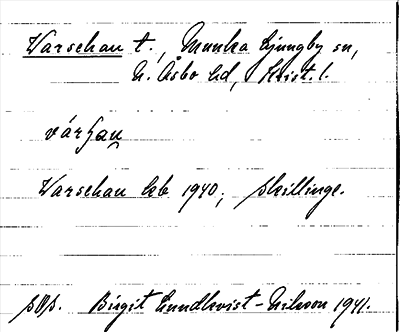 Warschau t., Munka Ljungby sn,
N. Åsbo hd, Krist. l.
várʃau̯
Warschau hb 1940; skillinge.
Birgit Lundkvist-Nilsson 1941.